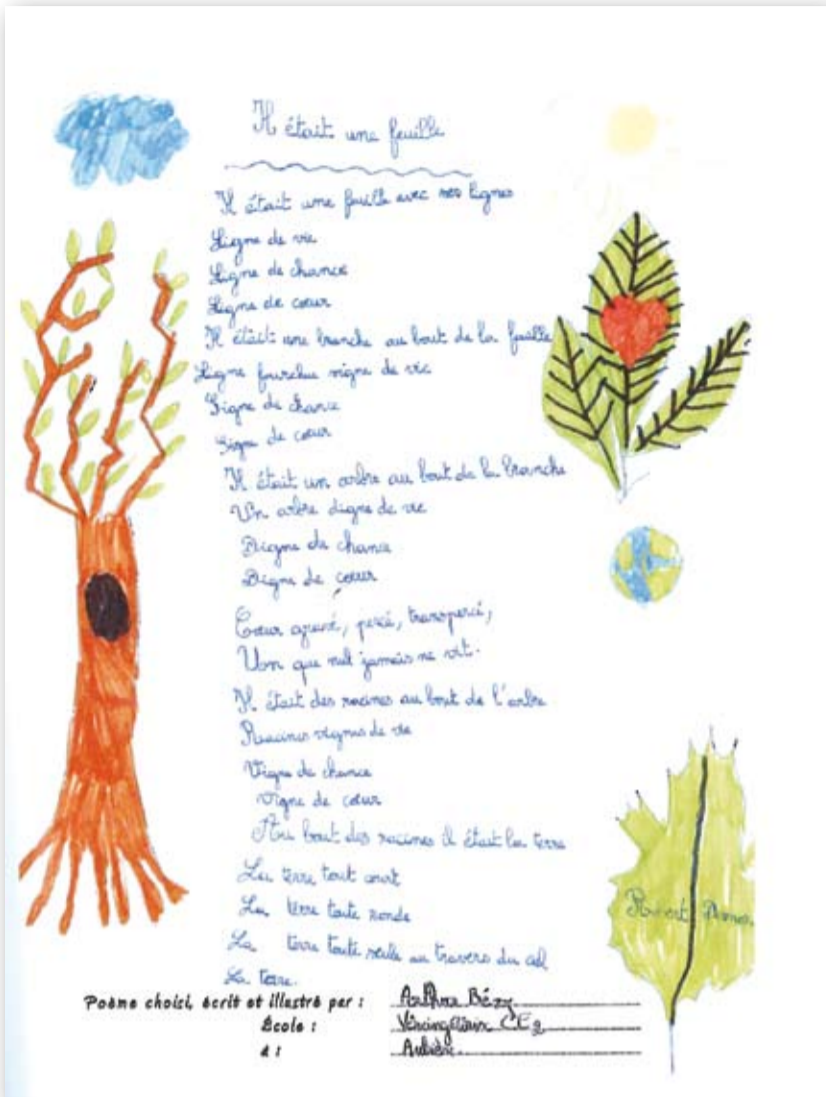 Il était une feuille
Il était une feuille avec ses lignes
Ligne de vie
Ligne de chance
Ligne de cœur
Il était une branche au bout de la feuille
Ligne fourchue signe de vie
Signe de chance
Signe de cœur
Il était un arbre au bout de la branche
Un arbre digne de vie
Digne de chance
Digne de cœur
Cœur gravé, percé, transpercé,
Un que nul jamais ne vit.
Il était des racines au bout de l'arbre
Racines vignes de vie
Vigne de chance
Vigne de cœur
Au bout des racines il était la terre
La terre tout court
La terre toute ronde
La terre toute seule au travers du ciel
La terre.
Robert Desnos
Poème choisi, écrit et illustré par : Bézy
École : Vercingétorix CE2
à : Aubière